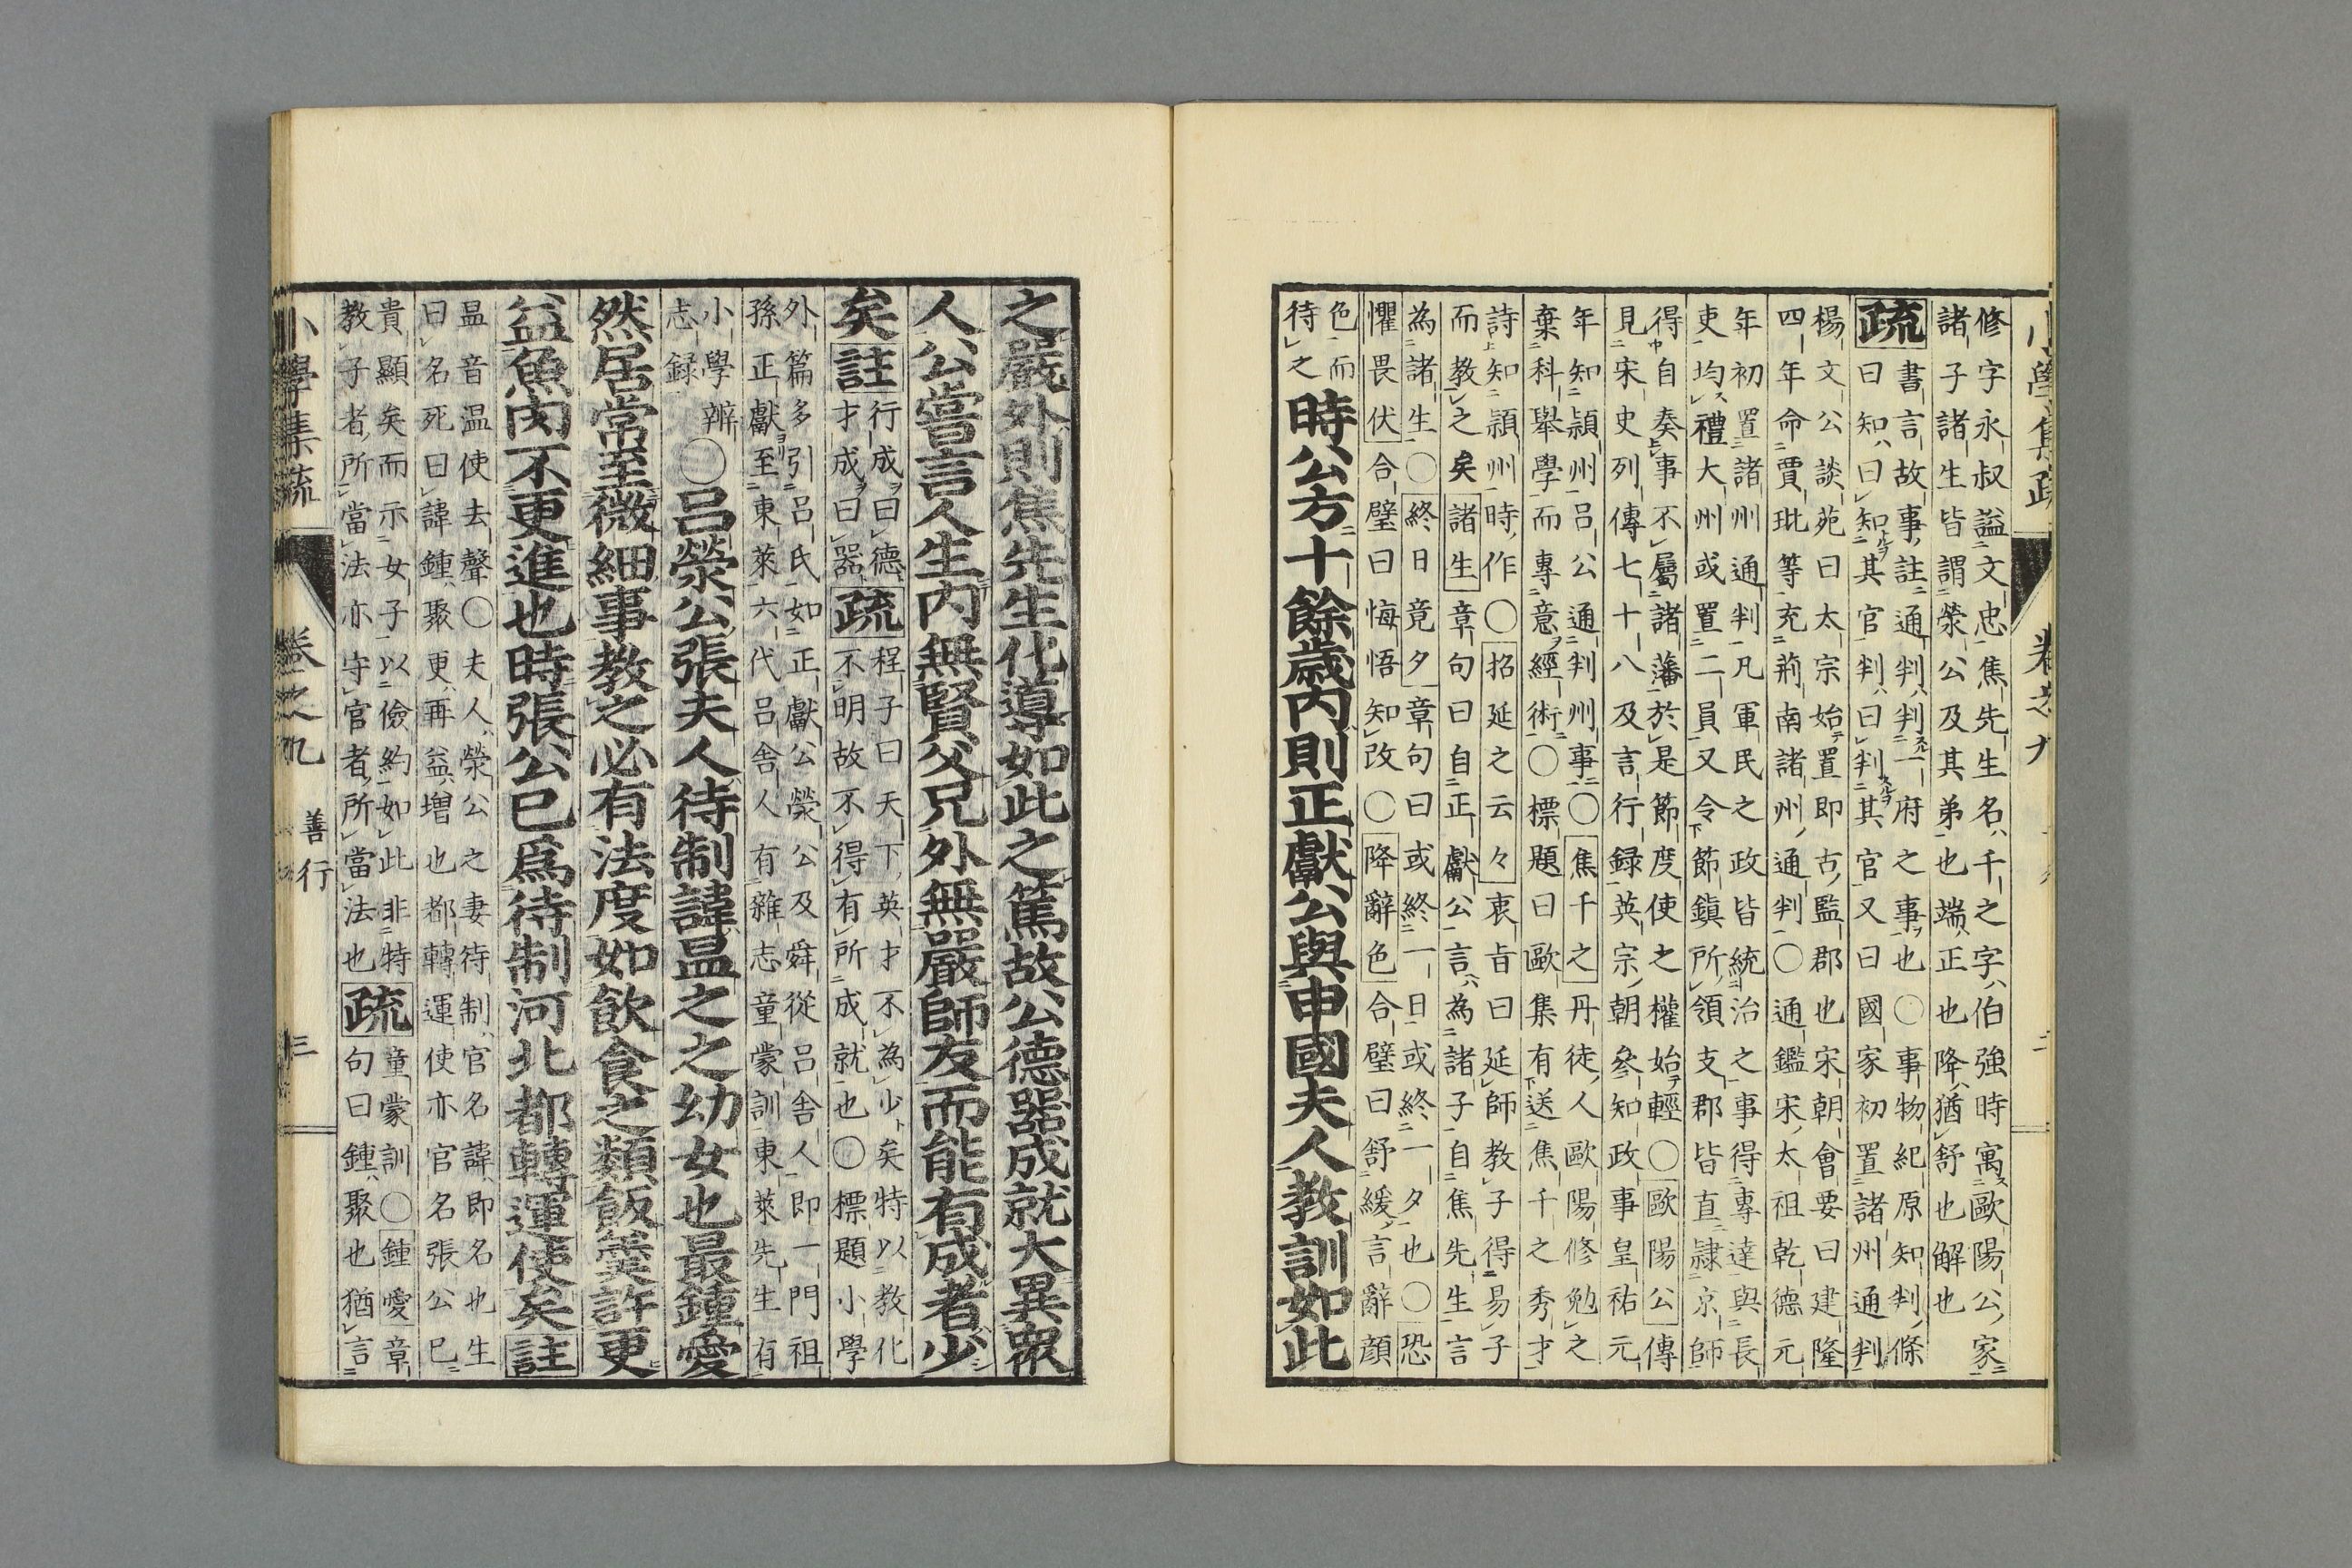 修字永叔謚文忠焦先生名千之字伯強時寓歐陽公家
諸子諸生皆謂滎公及其弟也端正也降猶舒也解也
疏
書言故事註通判判一府之事也〇事物紀原知判條
曰知曰知其官判曰判其官又曰國家初置諸州通判
楊文公談苑曰太宗始置即古監郡也宋朝會要曰建隆
四年命賈玭等充荊南諸州通判〇通鑑宋太祖乾德元
年初置諸州通判凡軍民之政皆統治之事得專達與長
吏均禮大州或置二員又令節鎮所領支郡皆直隷京師
得自奏事不屬諸藩於是節度使之權始輕〇歐陽公傳
見宋史列傳七十八及言行録英宗朝參知政事皇祐元
年知頴州呂公通判州事〇焦千之丹徒人歐陽修勉之
棄科舉學而專意經術〇標題曰歐集有送焦千之秀才
詩知頴州時作〇招延之云々衷旨曰延師教子得易子
而教之矣諸生章句曰自正獻公言為諸子自焦先生言
為諸生〇終日竟夕章句曰或終一日或終一夕也〇恐
懼畏伏合璧曰悔悟知改〇降辭色合璧曰舒緩言辭顔
色而
待之
時公方十餘歳内則正獻公與申國夫人教訓如此
之嚴外則焦先生化導如此之篤故公德器成就大異衆
人公嘗言人生内無賢父兄外無嚴師友而能有成者少
矣註
行成曰德
才成曰器
疏
程子曰天下英才不為少矣特以教化
不明故不得有所成就也〇標題小學
外篇多引呂氏如正獻公滎公及舜從呂舎人即一門祖
孫正獻至東萊六代呂舎人有雜志童蒙訓東萊先生有
小學辨
志録
〇呂滎公張夫人待制諱昷之之幼女也最鍾愛
然居常至微細事教之必有法度如飲食之類飯羹許更
益魚肉不更進也時張公已爲待制河北都轉運使矣註
昷音温使去聲〇夫人滎公之妻待制官名諱即名也生
曰名死曰諱鍾聚更再益増也都轉運使亦官名張公已
貴顯矣而示女子以儉約如此非特
教子者所當法亦守官者所當法也
疏
童蒙訓〇鍾愛章
句曰鍾聚也猶言
小學集疏
卷之九
善行
三